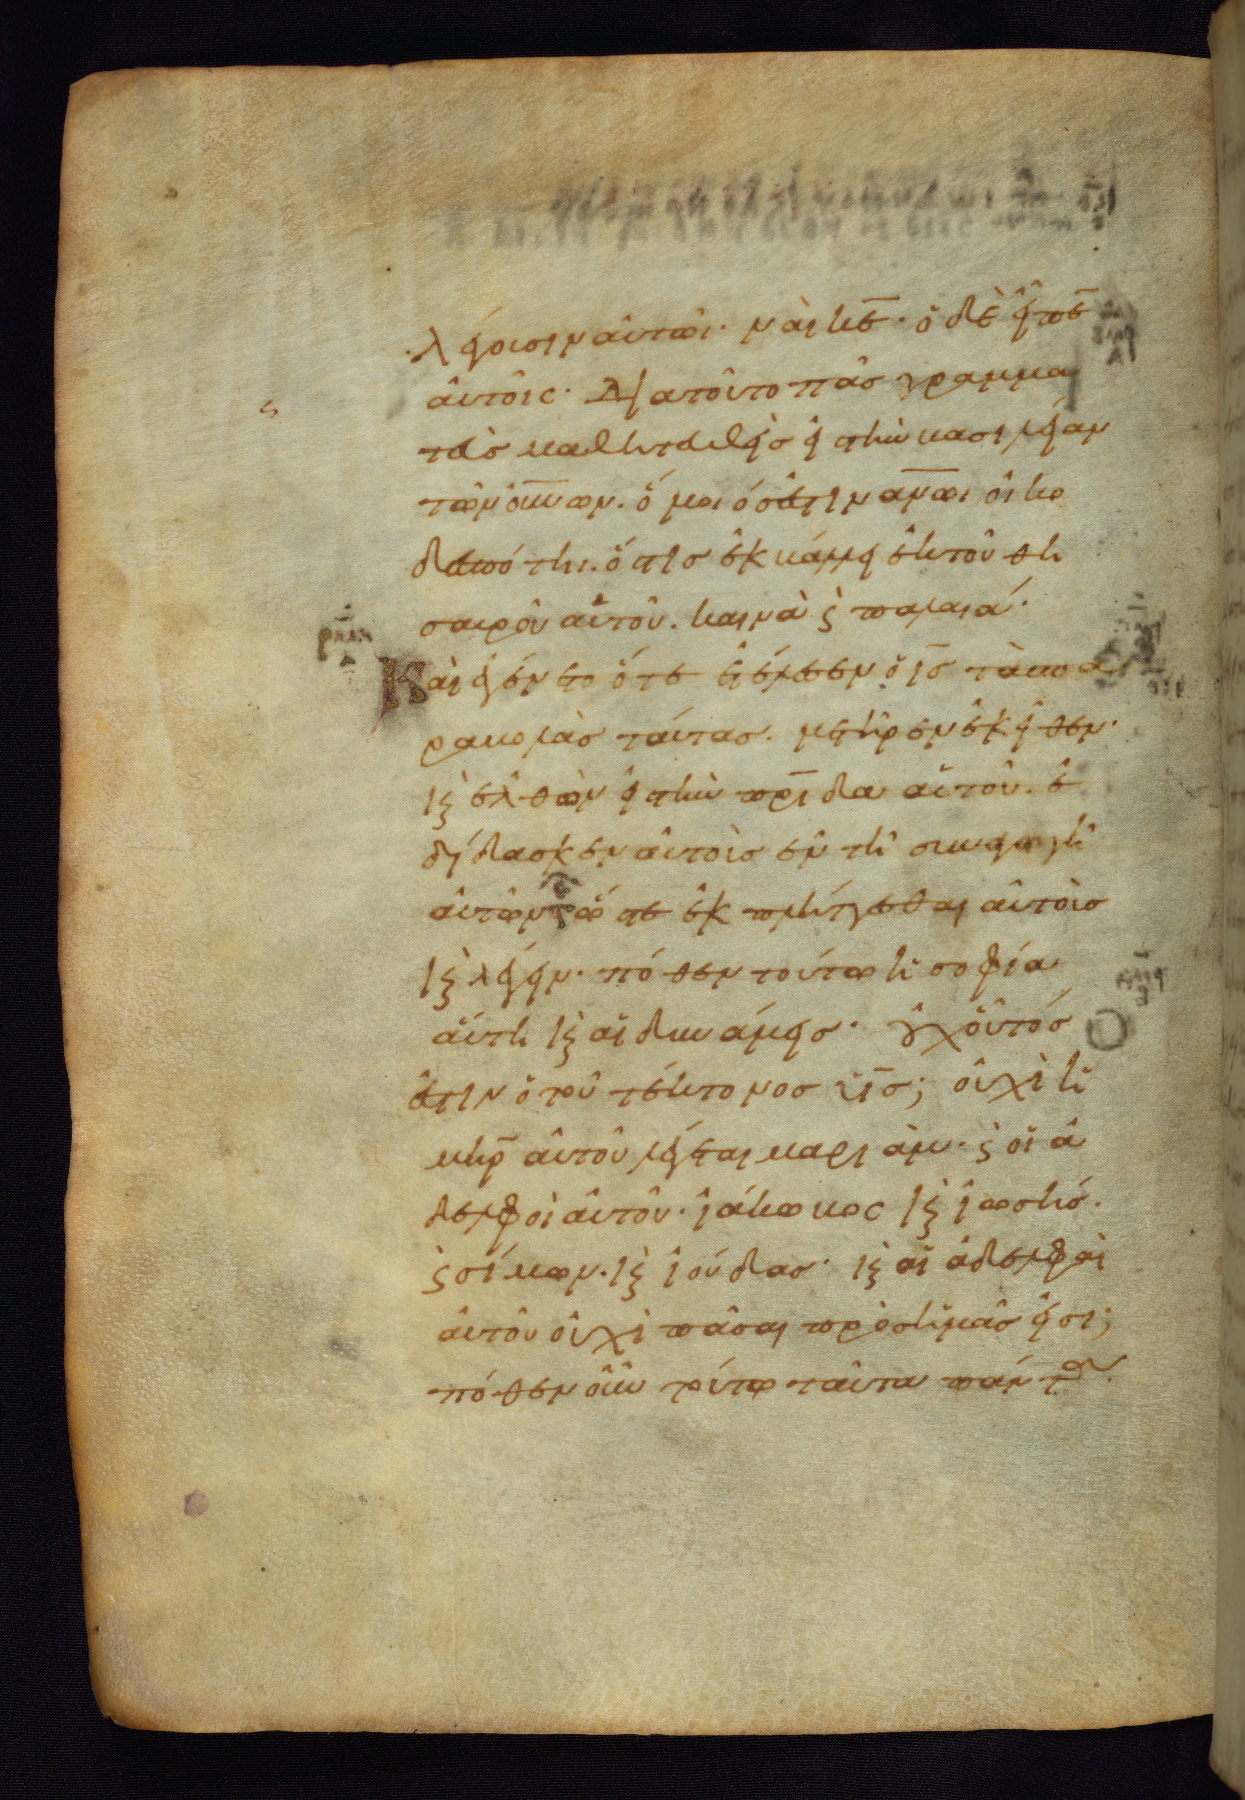 λέγουσιν αὐτῶι· ναὶ κε̅· ὁ δὲ εἶπεν
αὐτοῖς· Διατοῦτο πᾶσ γραμμα
τεὺσ μαθητευθεὶσ εἰς τὴν βασιλείαν
τῶν ουν̅ων· ὅμοιόσ ἐστιν αν̅ωι οἰκο
δεσπότηι· ὅστισ ἐκβάλλει ἐκ τοῦ θη
σαυροῦ αὐτοῦ· καινὰ ϗ παλαιά·
Καὶ ἐγένετο ὅτε ἐτέλεσεν ὁ ισ̅ τὰσ πα
ραβολὰσ ταύτασ· μετῆρεν ἐκεῖθεν·
ϗ ἐλθὼν εἰς τὴν πρι̅δα αὐτοῦ· ἐ
δίδασκεν αὐτοὺσ ἐν τῆ συναγωγῆ
αὐτῶν· ὥστε ἐκπλήττεσθαι αὐτοὺσ
ϗ λέγειν· πόθεν τούτω ἡ σοφία
αὕτη ϗ αἱ δυνάμεισ· οὐχ οὗτόσ
ἐστιν ὁ τοῦ τέκτονοσ υι̅σ; οὐχὶ ἡ
μηρ̅ αὐτοῦ λέγεται μαριάμ· ϗ οἱ ἀ
δελφοὶ αὐτοῦ· ἰάκωβος ϗ ἰωσῆσ·
ϗ σίμων· ϗ ἰούδασ· ϗ αἱ ἀδελφαὶ
αὐτοῦ οὐχὶ πᾶσαι πρὸσ ἡμᾶσ εἰσι;
πόθεν οὖν τούτω ταῦτα πάντα·